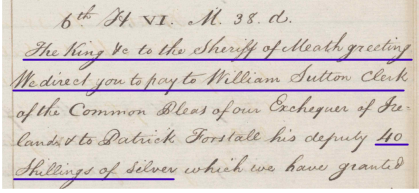 6th H VI. M. 38. d.
The King &c to the Sheriff of Meath greeting
We direct you to pay to William Sutton Clerk
of the Common Pleas of our Exchequer of Ire-
land, & to Patrick Forstall his deputy 40
Shillings of Silver which we have granted